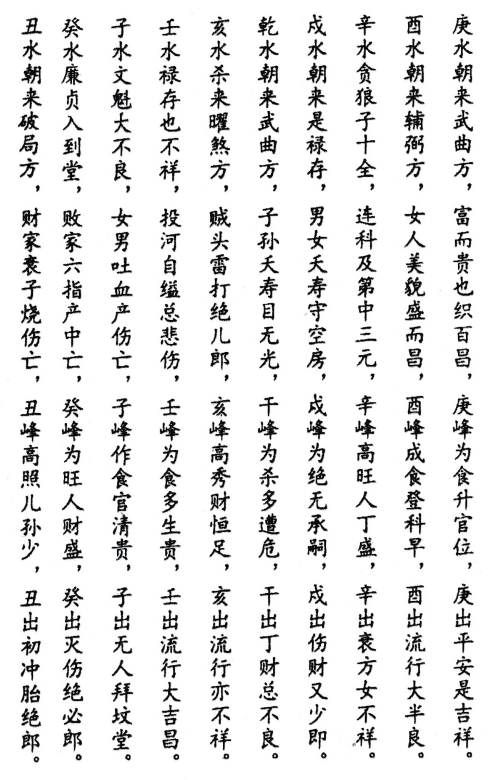 庚水朝来武曲方，富而贵也织百昌，庚峰为食升官位，庚出平安是吉祥。
酉水朝来辅弼方，女人美貌盛而昌，酉峰成食登科早，酉出流行大半良。
辛水贪狼子十全，连科及第中三元，辛峰高旺人丁盛，辛出衰方女不祥。
戍水朝来是禄存，男女夭寿守空房，戍峰为绝无承嗣，戍出伤财又少即。
乾水朝来武曲方，子孙夭寿目无光，干峰为杀多遭危，干出丁财总不良。
亥水杀来曜煞方，贼头雷打绝儿郎，亥峰高秀财恒足，亥出流行亦不祥。
壬水禄存也不祥，投河自缢总悲伤，壬峰为食多生贵，壬出流行大吉昌。
子水文魁大不良，女男吐血产伤亡，子峰作食官清贵，子出无人拜坟堂。
癸水廉贞入到堂，败家六指产中亡，癸峰为旺人财盛，癸出灭伤绝必郎。
丑水朝来破局方，财家衰子烧伤亡，丑峰高照儿孙少，丑出初冲胎绝郎。